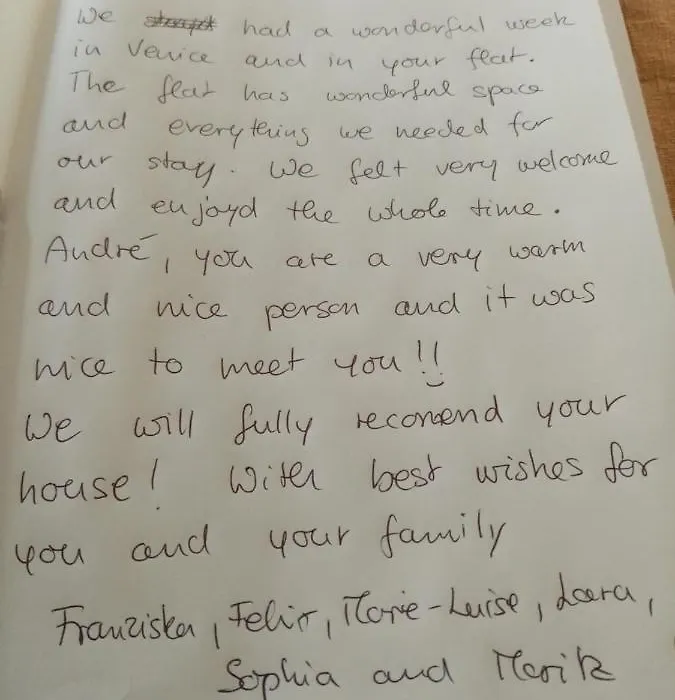 We had a wonderful week
in Venice and in your flat.
The flat has wonderful space
and everything we needed for
our stay. We felt very welcome
and enjoyd the whole time.
André, you are a very warm
and nice person and it was
nice to meet you!!
We will fully recomend your
house! With best wishes for
you and your family
Franziska, Felix, Marie-Luise, Laura,
Sophia and Moritz